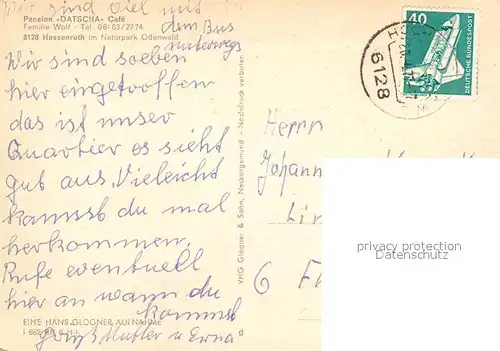 wir sind viel mit
dem Bus
unterwegs
Pension »DATSCHA« Café
Familie Wolf - Tel 06163/2774
6128 Hassenroth im Naturpark Odenwald
Wir sind soeben
hier eingetroffen
das ist unser
Quartier es sieht
gut aus, Vieleicht
kannst du mal
herkommen.
Rufe eventuell
hier an wann du
kommst
Gruß Mutter u Erna
EINE HANS GLOGNER AUFNAHME
VHG Glogner & Sohn, Neckargemünd - Nachdruck verboten
40
DEUTSCHE BUNDESPOST
6128
Herrn
Johann
6 F
privacy protection
Datenschutz